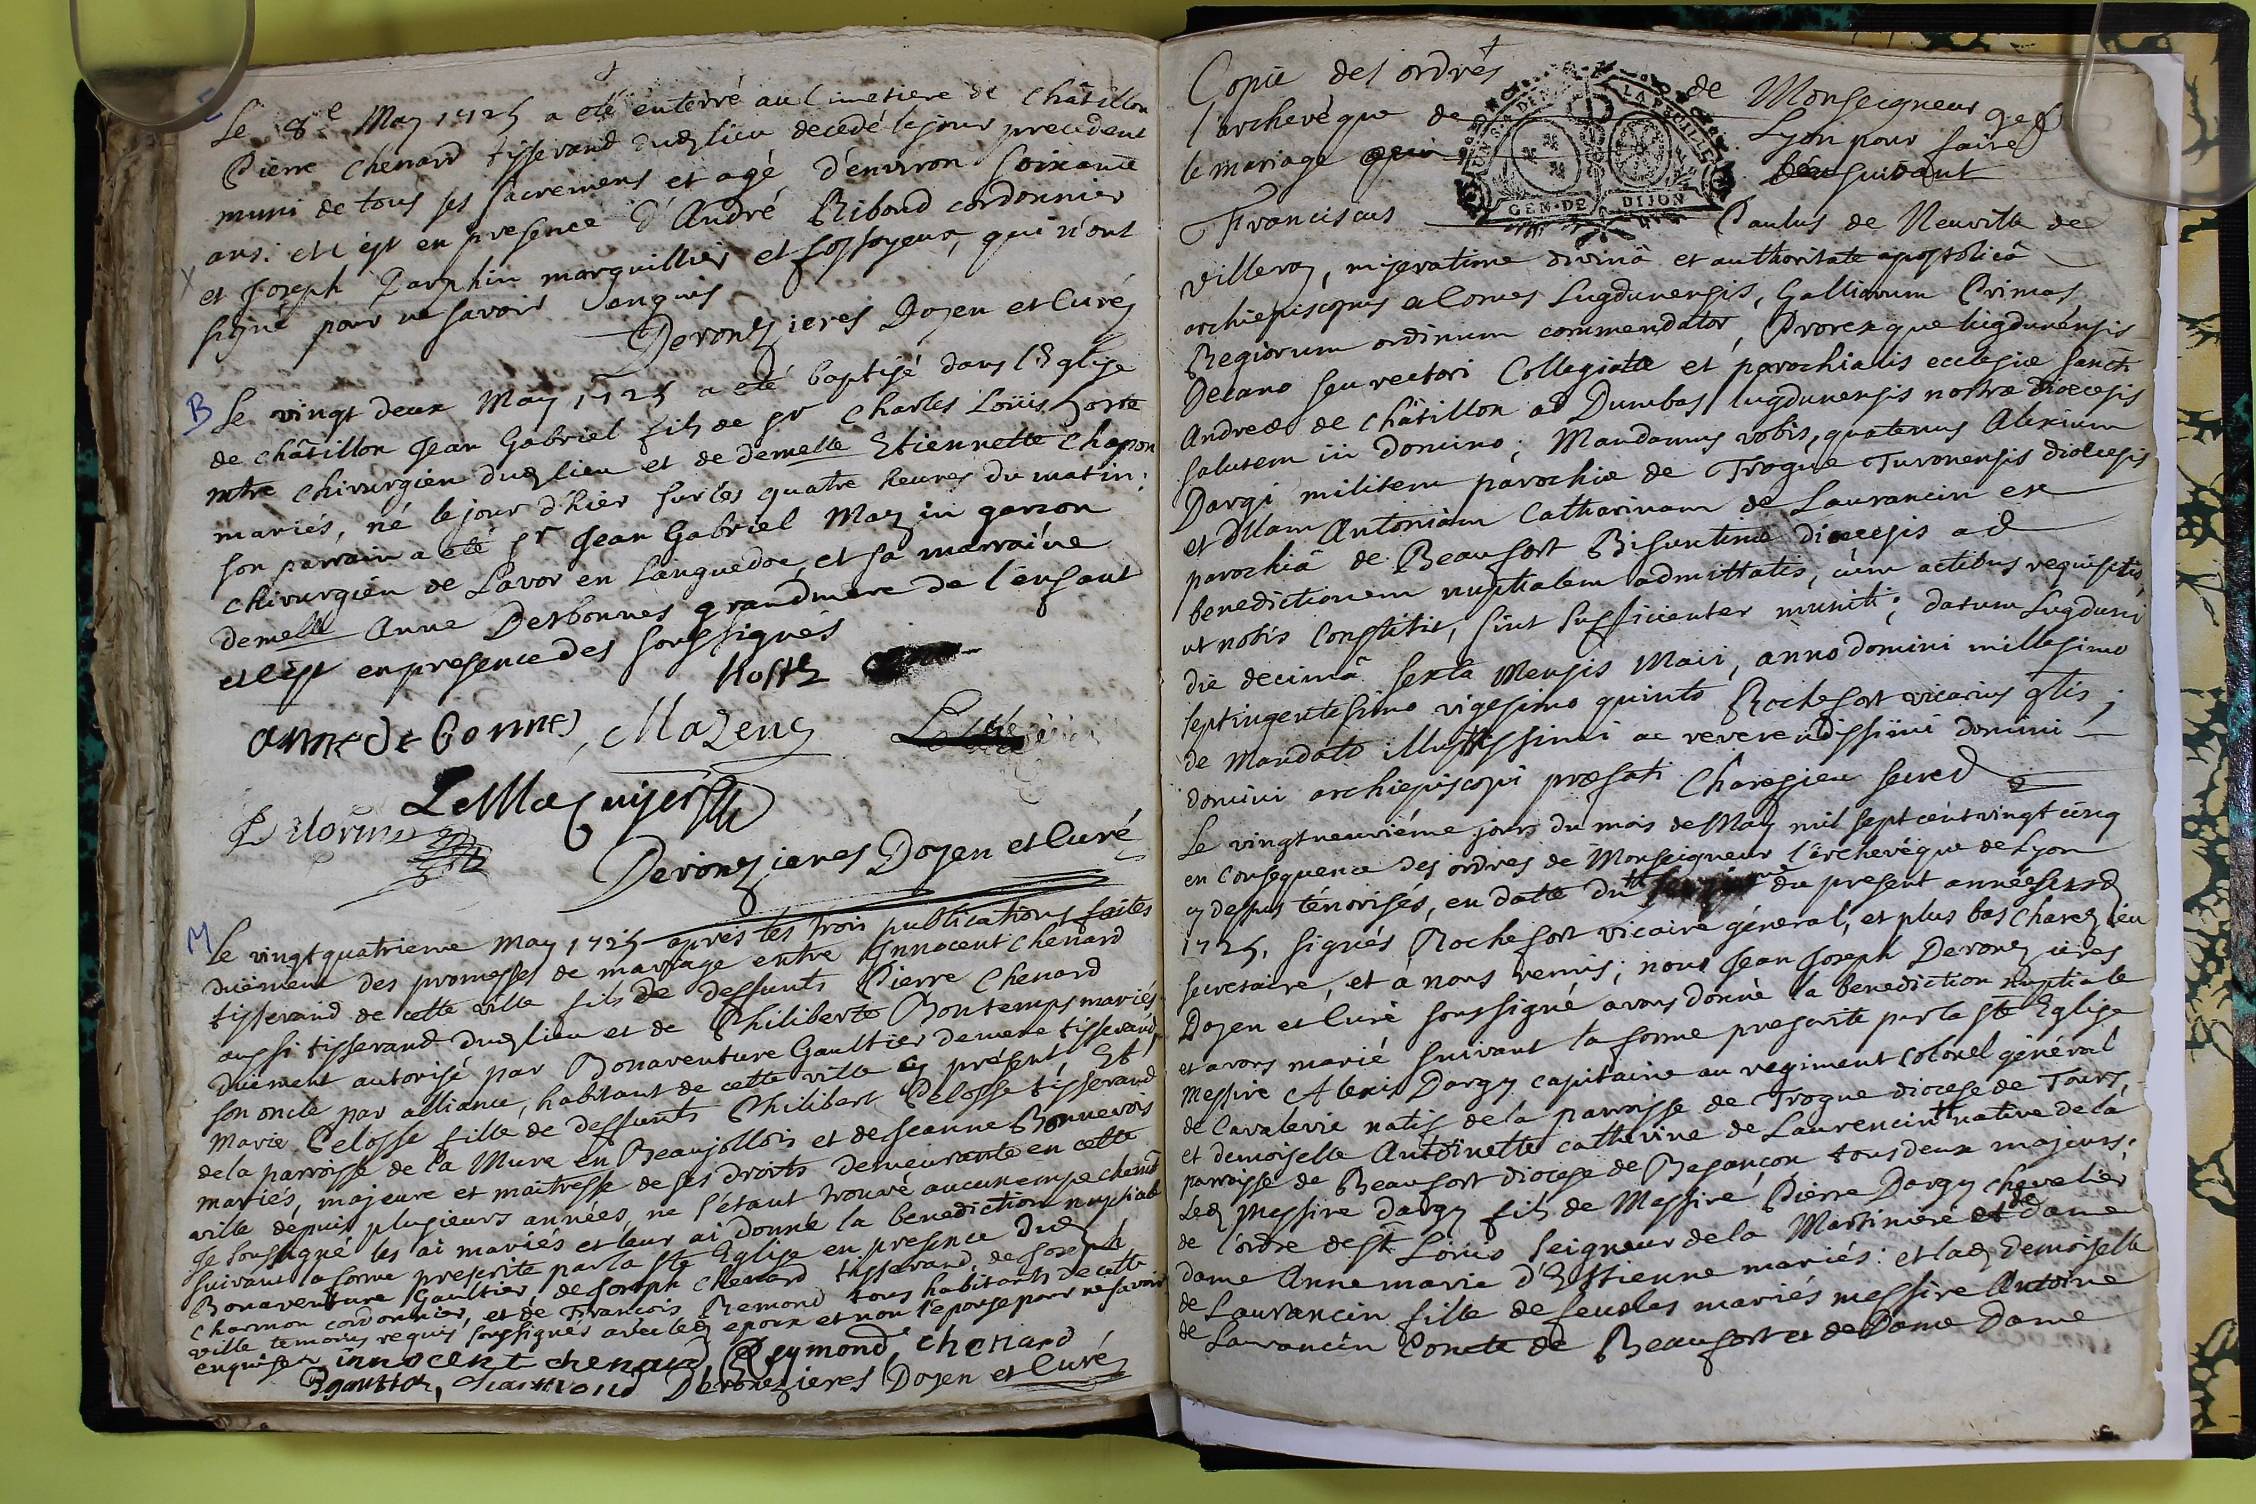 Le 8e May 1725 a eté enterré au Cimetiere de Châtillon
Pierre Chenard tisserand dudz lieu decedé le jour precedent
muni de tous ses sacremens et agé d'environ soixante
ans: et c'est en presence d'André Ribond cordonnier
et Joseph Dauphin marguillier et fossoyeur, qui n'ont
signé pour ne savoir enquis
Deronzieres Doyen et Curé
B
Le vingt deux May 1725 a eté baptisé dans l'Eglise
de châtillon Jean Gabriel fils de sr Charles Loüis hoste
mtre chirurgien dudz lieu et de demelle Etiennette Chapon
mariés, né le jour d'hier sur les quatre heures du matin:
son parrain a eté sr Jean Gabriel Mazin garzon
chirurgien de Lavor en Languedoc, et sa marraine
demelle Anne Desbonnes grandmere de l'enfant
et c'est en presence des soussignés
hoste
anne de bonnes, Mazenq
Delorme
Deronzieres Doyen et Curé
M
Le vingtquatrieme May 1725 après les trois publications faites
duëment des promesses de mariage entre Innocent Chenard
tisserand de cette ville fils de deffunts Pierre Chenard
aussi tisserand dudz lieu et de Philiberte Bontemps mariés
duëment autorisé par Bonaventure Gaultier demême tisserand,
son oncle par alliance, habitant de cette ville cy présent, Et
Marie Pelosse fille de deffunts Philibert Pelosse tisserand
de la parroisse de la Mure en Beaujollois et de Jeanne Bonnevois
mariés, majeure et maîtresse de ses droits demeurante en cette
ville depuis plusieurs années, ne s'étant trouvé aucun empechemt
Je soussigné les ai mariés et leur ai donné la benediction nuptiale
suivant la forme prescrite par la ste Eglise en presence dudz
Bonaventure Gaultier, de Joseph Chenard tisserand, de Joseph
Charmon cordonnier, et de François Remond tous habitants de cette
ville temoins requis soussignés avec ledz epoux et non l'epouse pour ne savoir
enquise innocent chenard, Reymond, Chenard
Bgaultier, Charmond Deronzieres Doyen et Curé
Copie des ordrés de Monseigneur
l'archevêque de Lyon pour faire
le mariage suivant
GEN·DE DIJON
Franciscus Paulus de Neuville de
villeroy, miseratione divinâ et authoritate apostolicâ
archiepiscopus et Comes Lugdunensis, Galliarum Primas
Regiorum ordinum commendator, Prorex que lugdunensis
Decano seu rectori Collegiatæ et parochialis ecclesiæ sancti
Andreæ de Châtillon ad Dumbas lugdunensis nostræ diœcesis
salutem in domino; Mandamus vobis, quatenus Alexium
Dargi militem parochiæ de Trogue Turonensis diœcesis
et dllam Antoniam Catharinam de Laurancin ex
parochiâ de Beaufort Bisuntinæ diœcesis ad
benedictionem nuptialem admittatis, cùm actibus requisitis,
ut nobis constitit, sint sufficienter muniti; datum Lugduni
die decimâ sexta mensis Maii, anno domini millesimo
septingentesimo vigesimo quinto Rochefort vicarius glis;
de Mandato illustrissimi ac reverendissimi domini
domini archiepiscopi præfati Charesieu secred
Le vingtneuviéme jour du mois de May mil sept cent vingt cinq
en consequence des ordres de Monseigneur l'archevêque de Lyon
cy dessus ténorisés, en datte du du present année
1725, signés Rochefort vicaire général, et plus bas Charezieu
secretaire, et à nous remis; nous Jean Joseph Deronzieres
Doyen et Curé soussigné avons donné la benediction nuptiale
et avons marié suivant la forme prescrite par la ste Eglise
Messire Alexis Dargy capitaine au regiment colonel général
de Cavalerie natif de la parroisse de Trogue diocese de Tours,
et demoiselle Antoinette catherine de Laurencin native de la
parroisse de Beaufort diocese de Besançon tous deux majeurs:
Ledz Messire Dargy fils de Messire Pierre Dargy chevalier
de l'ordre de st Loüis Seigneur de la Martiniere et de dame
Dame Annemarie d'Estienne mariés: et ladz Demoiselle
de Laurancin fille de feu les mariés messire Antoine
de Laurancin Comte de Beaufort et de Dame Dame